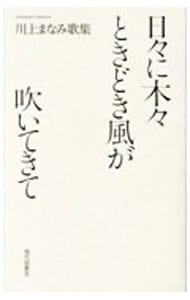 川上まなみ歌集
日々に木々
ときどき風が
吹いてきて
現代短歌社